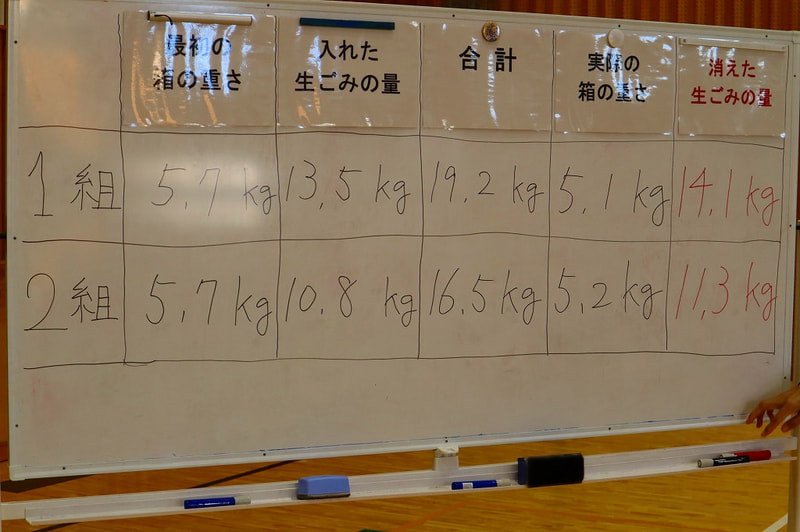 最初の
箱の重さ
入れた
生ごみの量
合計
実際の
箱の重さ
消えた
生ごみの量
1組 5.7kg 13.5kg 19.2kg 5.1kg 14.1kg
2組 5.7kg 10.8kg 16.5kg 5.2kg 11.3kg